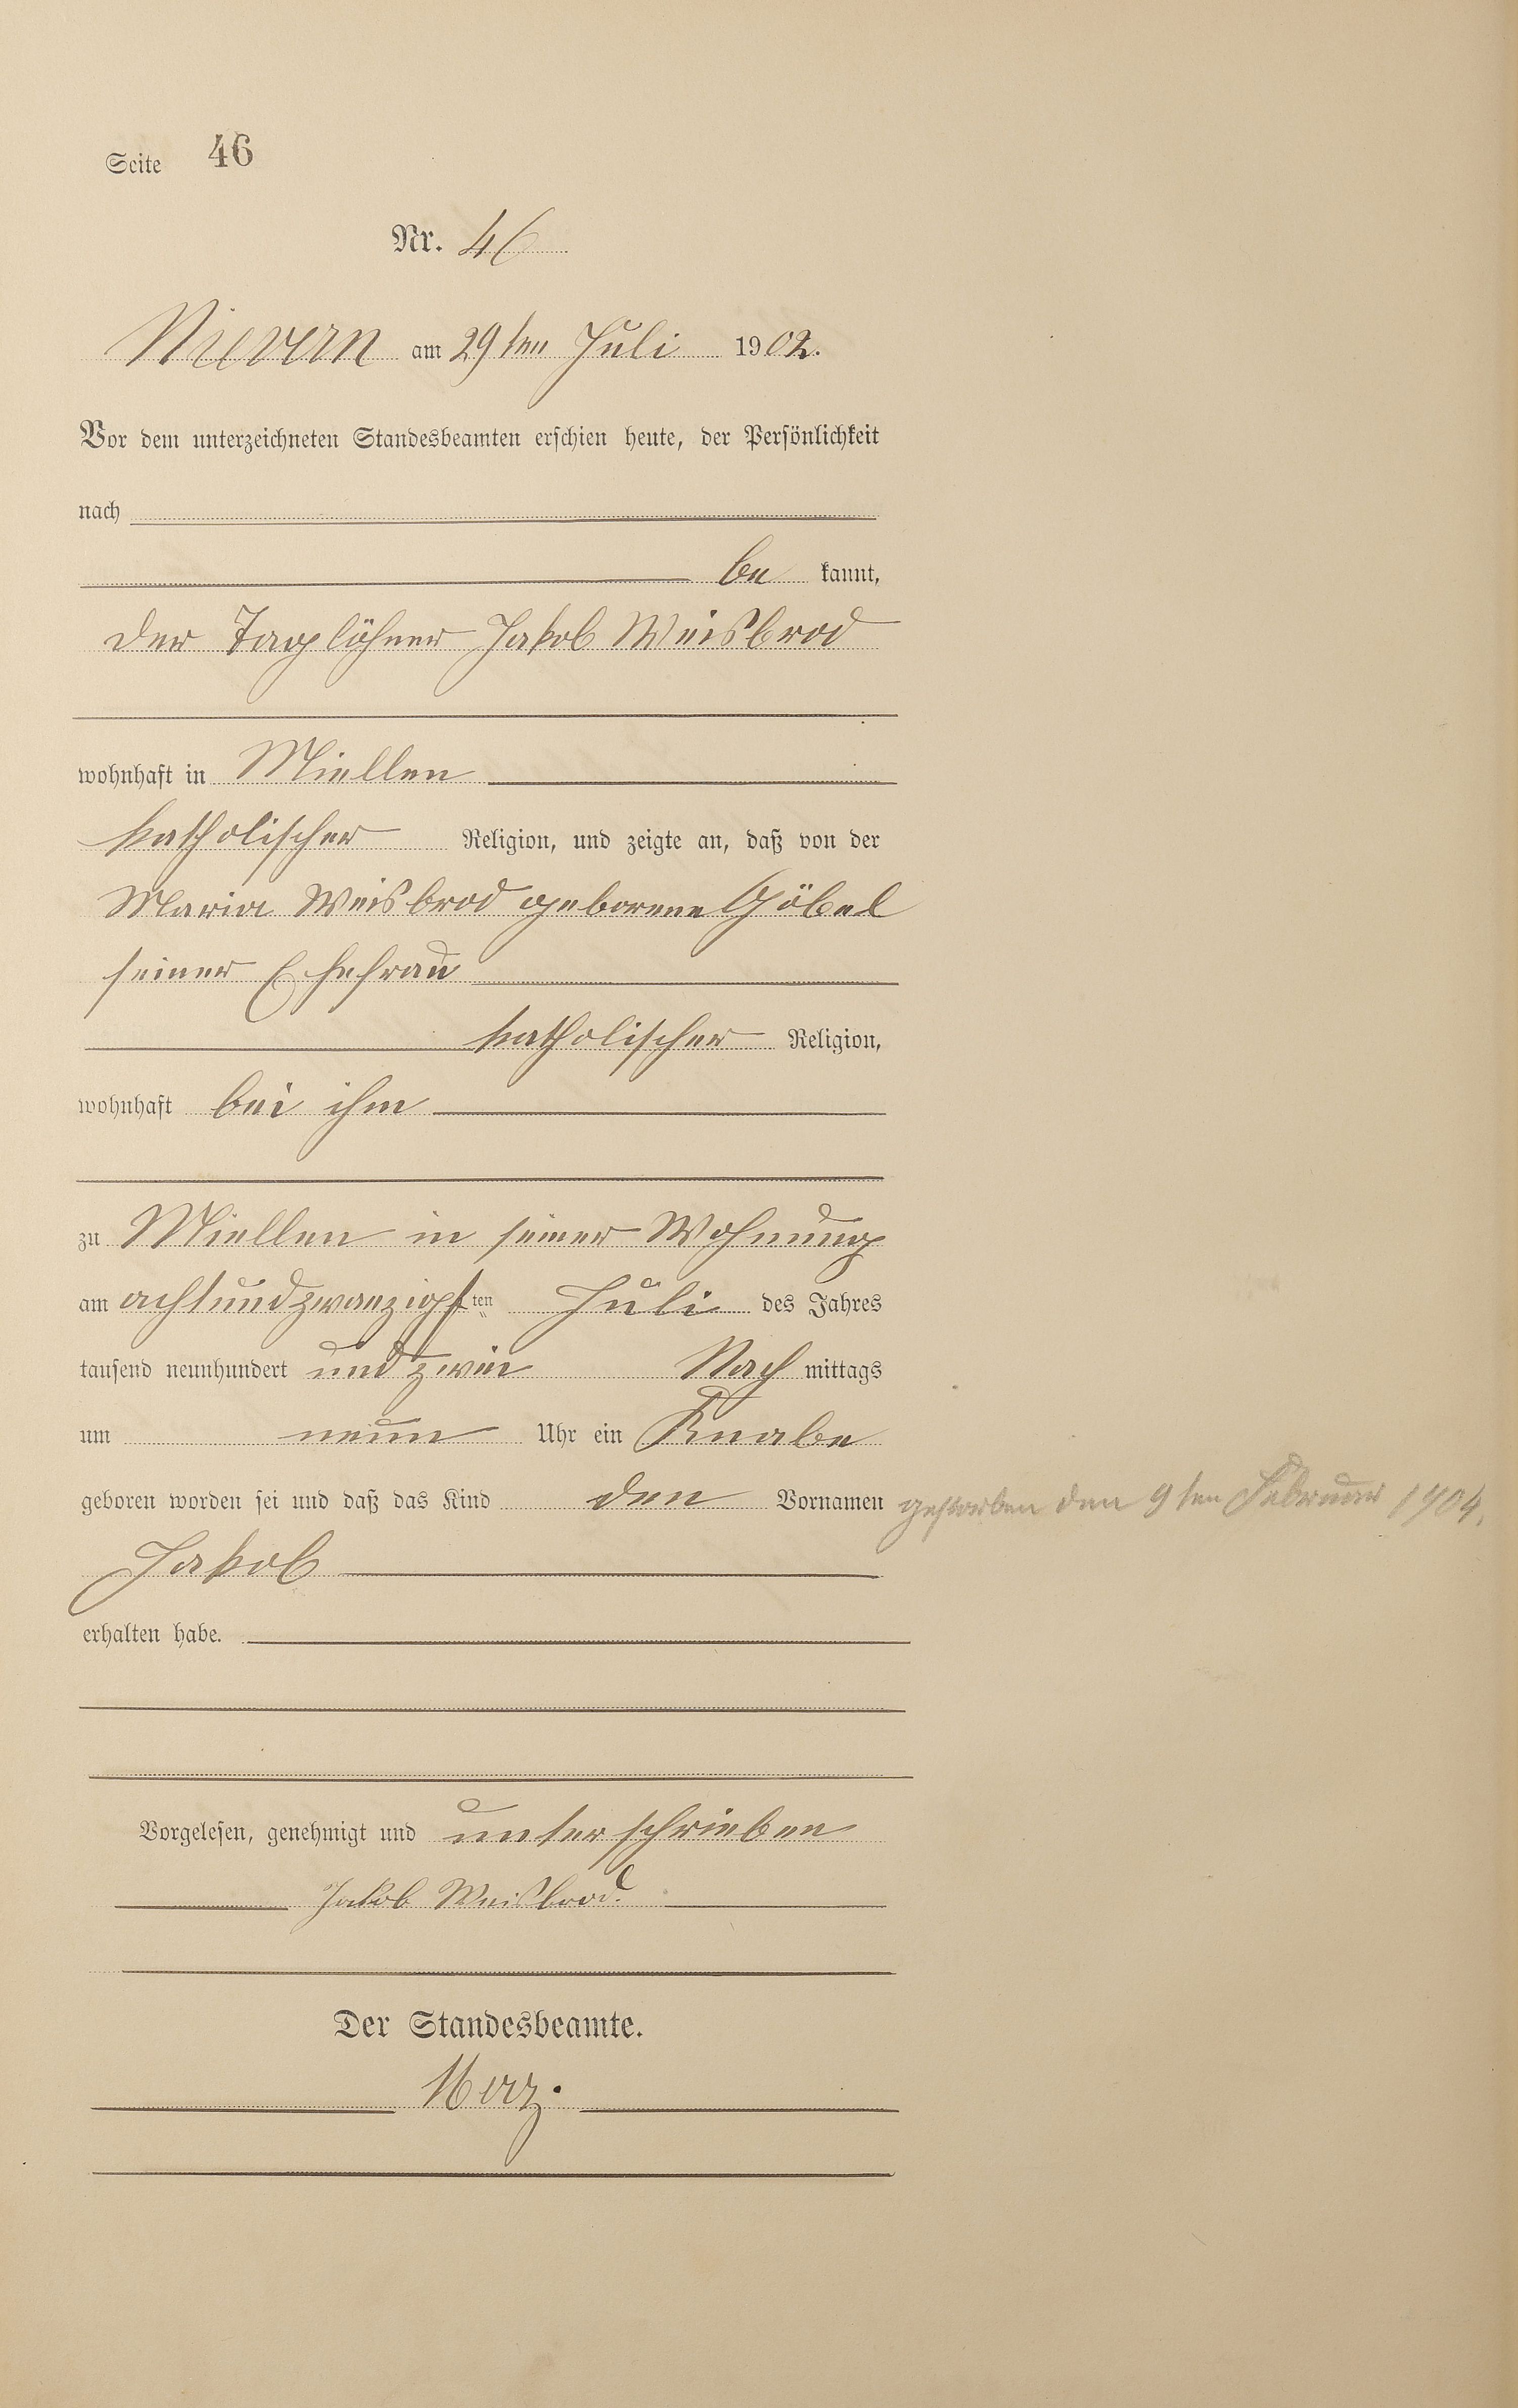 Seite 46
Nr. 46
Nievern am 29ten Juli 1902.
Vor dem unterzeichneten Standesbeamten erschien heute, der Persönlichkeit
nach
be kannt,
der Taglöhner Jakob Weisbrod
wohnhaft in Miellen
katholischer Religion, und zeigte an, daß von der
Maria Weisbrod geborene Göbel
seiner Ehefrau
katholischer Religion,
wohnhaft bei ihm
zu Miellen in seiner Wohnung
am achtundzwanzigsten Juli des Jahres
tausend neunhundert und zwei Nach mittags
um neun Uhr ein Knabe
geboren worden sei und daß das Kind den Vornamen
gestorben den 9ten Februar 1904.
Jakob
erhalten habe.
Vorgelesen, genehmigt und unterschrieben
Jakob Weisbrod.
Der Standesbeamte.
Merz.